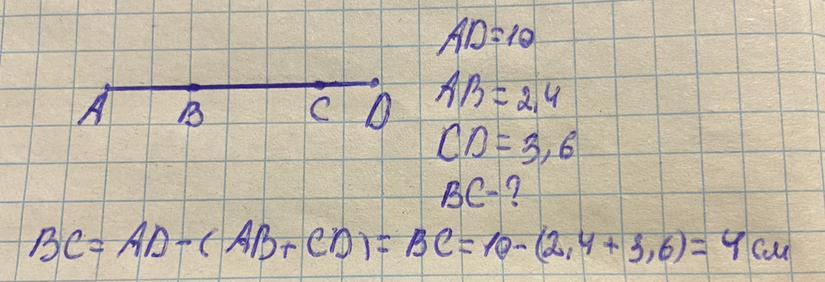 AD=10
A B C D
AB=2,4
CD=3,6
BC-?
BC= AD-(AB+CD)= BC=10-(2,4+3,6)= 4см